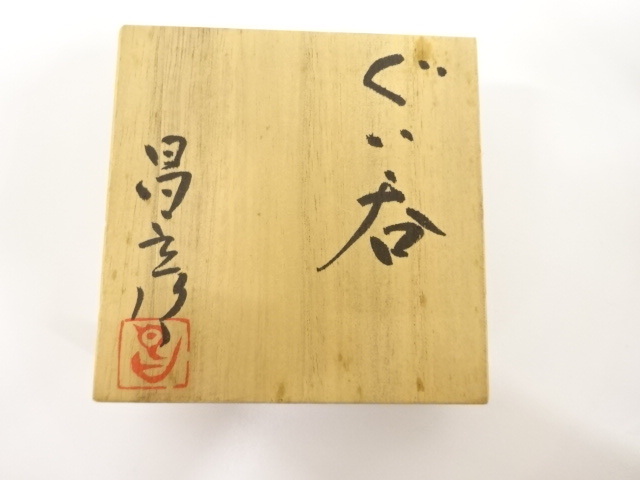 ぐい呑
昌彦